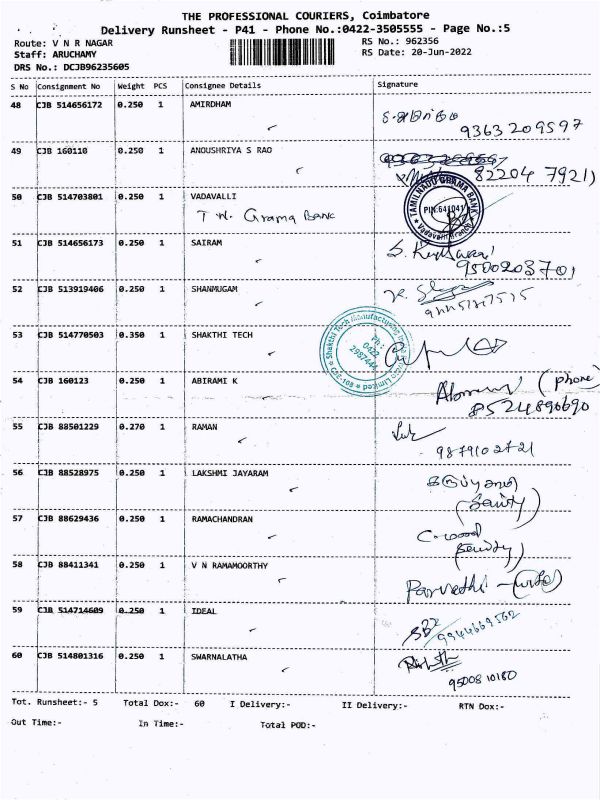 THE PROFESSIONAL COURIERS, Coimbatore
Delivery Runsheet - P41 - Phone No.:0422-3505555 - Page No.:5
Route: V N R NAGAR RS No.: 962356
Staff: ARUCHAMY RS Date: 20-Jun-2022
DRS No.: DCJB96235605
S No Consignment No Weight PCS Consignee Details Signature
48 CJB 514656172 0.250 1 AMIRDHAM
9363209597
49 CJB 160110 0.250 1 ANOUSHRIYA S RAO
82204 7921
50 CJB 514703801 0.250 1 VADAVALLI
T N. Grama Bank
TAMILNADU GRAMA BANK
PIN:641041
Vadavalli Branch
51 CJB 514656173 0.250 1 SAIRAM
9500203701
52 CJB 513919406 0.250 1 SHANMUGAM
53 CJB 514770503 0.350 1 SHAKTHI TECH
Shakthi Tech Manufacturing
Ph :
0422
Limited
54 CJB 160123 0.250 1 ABIRAMI K
(phone)
8524890690
55 CJB 88501229 0.270 1 RAMAN
9879102721
56 CJB 88528975 0.250 1 LAKSHMI JAYARAM
57 CJB 88629436 0.250 1 RAMACHANDRAN
58 CJB 88411341 0.250 1 V N RAMAMOORTHY
Parvathi - (wife)
59 CJB 514714609 0.250 1 IDEAL
9944669562
60 CJB 514801316 0.250 1 SWARNALATHA
9500810180
Tot. Runsheet:- 5 Total Dox:- 60 I Delivery:- II Delivery:- RTN Dox:-
Out Time:- In Time:- Total POD:-